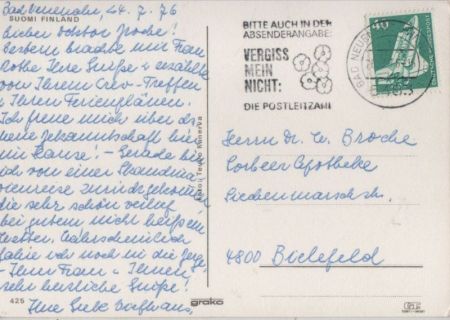 Bad Neuenahr, 24.7.76
SUOMI FINLAND
Lieber Doktor Broche!
Gestern brachte mir Frau
Rothe Ihre Grüße & erzählte
von Ihrem Crew-Treffen
& Ihrem Ferienplänen.
Ich freue mich über das
neue Bekanntschaft hier
im Hause! - Gerade bin
ich von einer Skandina-
vienreise zurückgekommen
die sehr schön verlief
bei gutem nicht heißem
Wetter. Wahrscheinlich
fahre ich noch in die
- Ihrer Frau & Ihnen
sehr herzliche Grüße!
Ihre
425
Foto: Teuvo Kanerva
grako
BITTE AUCH IN DER
ABSENDERANGABE:
VERGISS
MEIN
NICHT:
DIE POSTLEITZAHL
BAD NEUEN
40
Herrn Dr. W. Broche
Lorbeer Apotheke
4800 Bielefeld